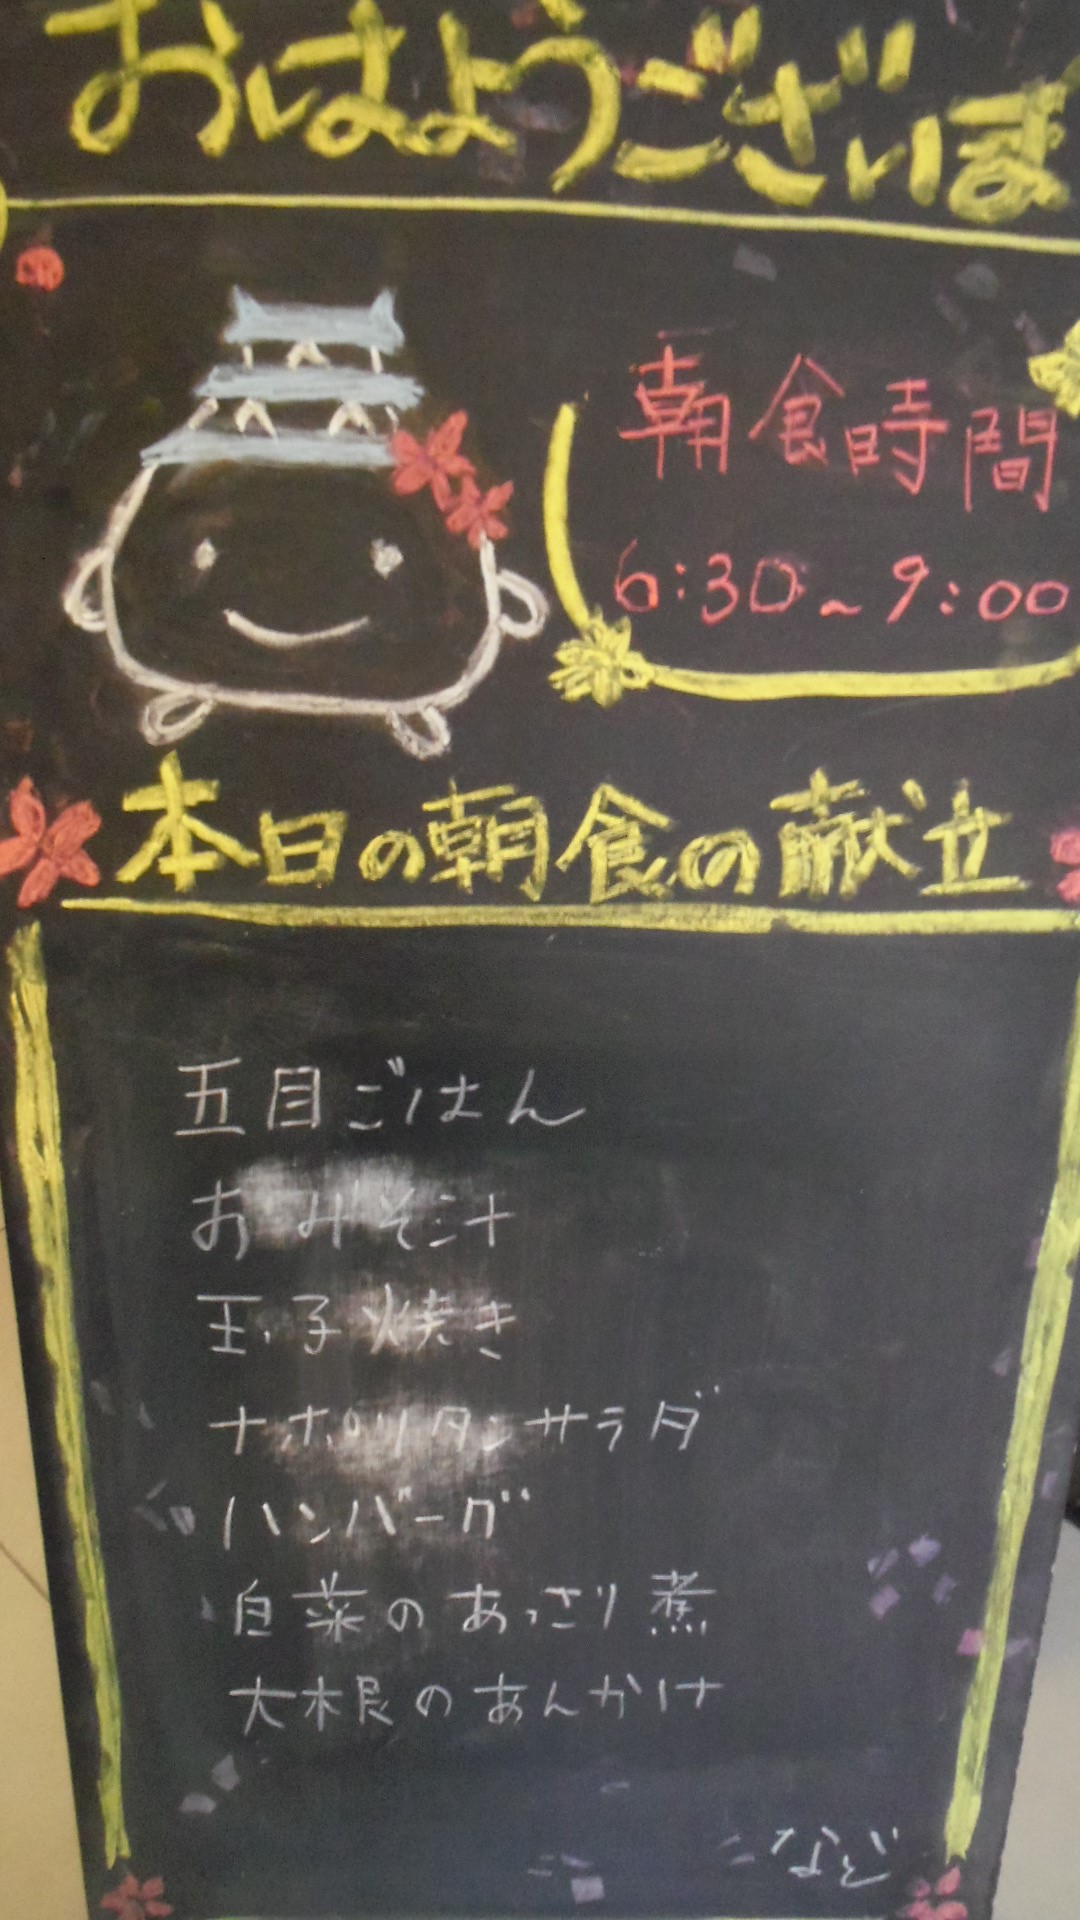 おはようございま
朝食時間
6:30~9:00
本日の朝食の献立
五目ごはん
おみそ汁
玉子焼き
ナポリタンサラダ
ハンバーグ
白菜のあっさり煮
大根のあんかけ
など